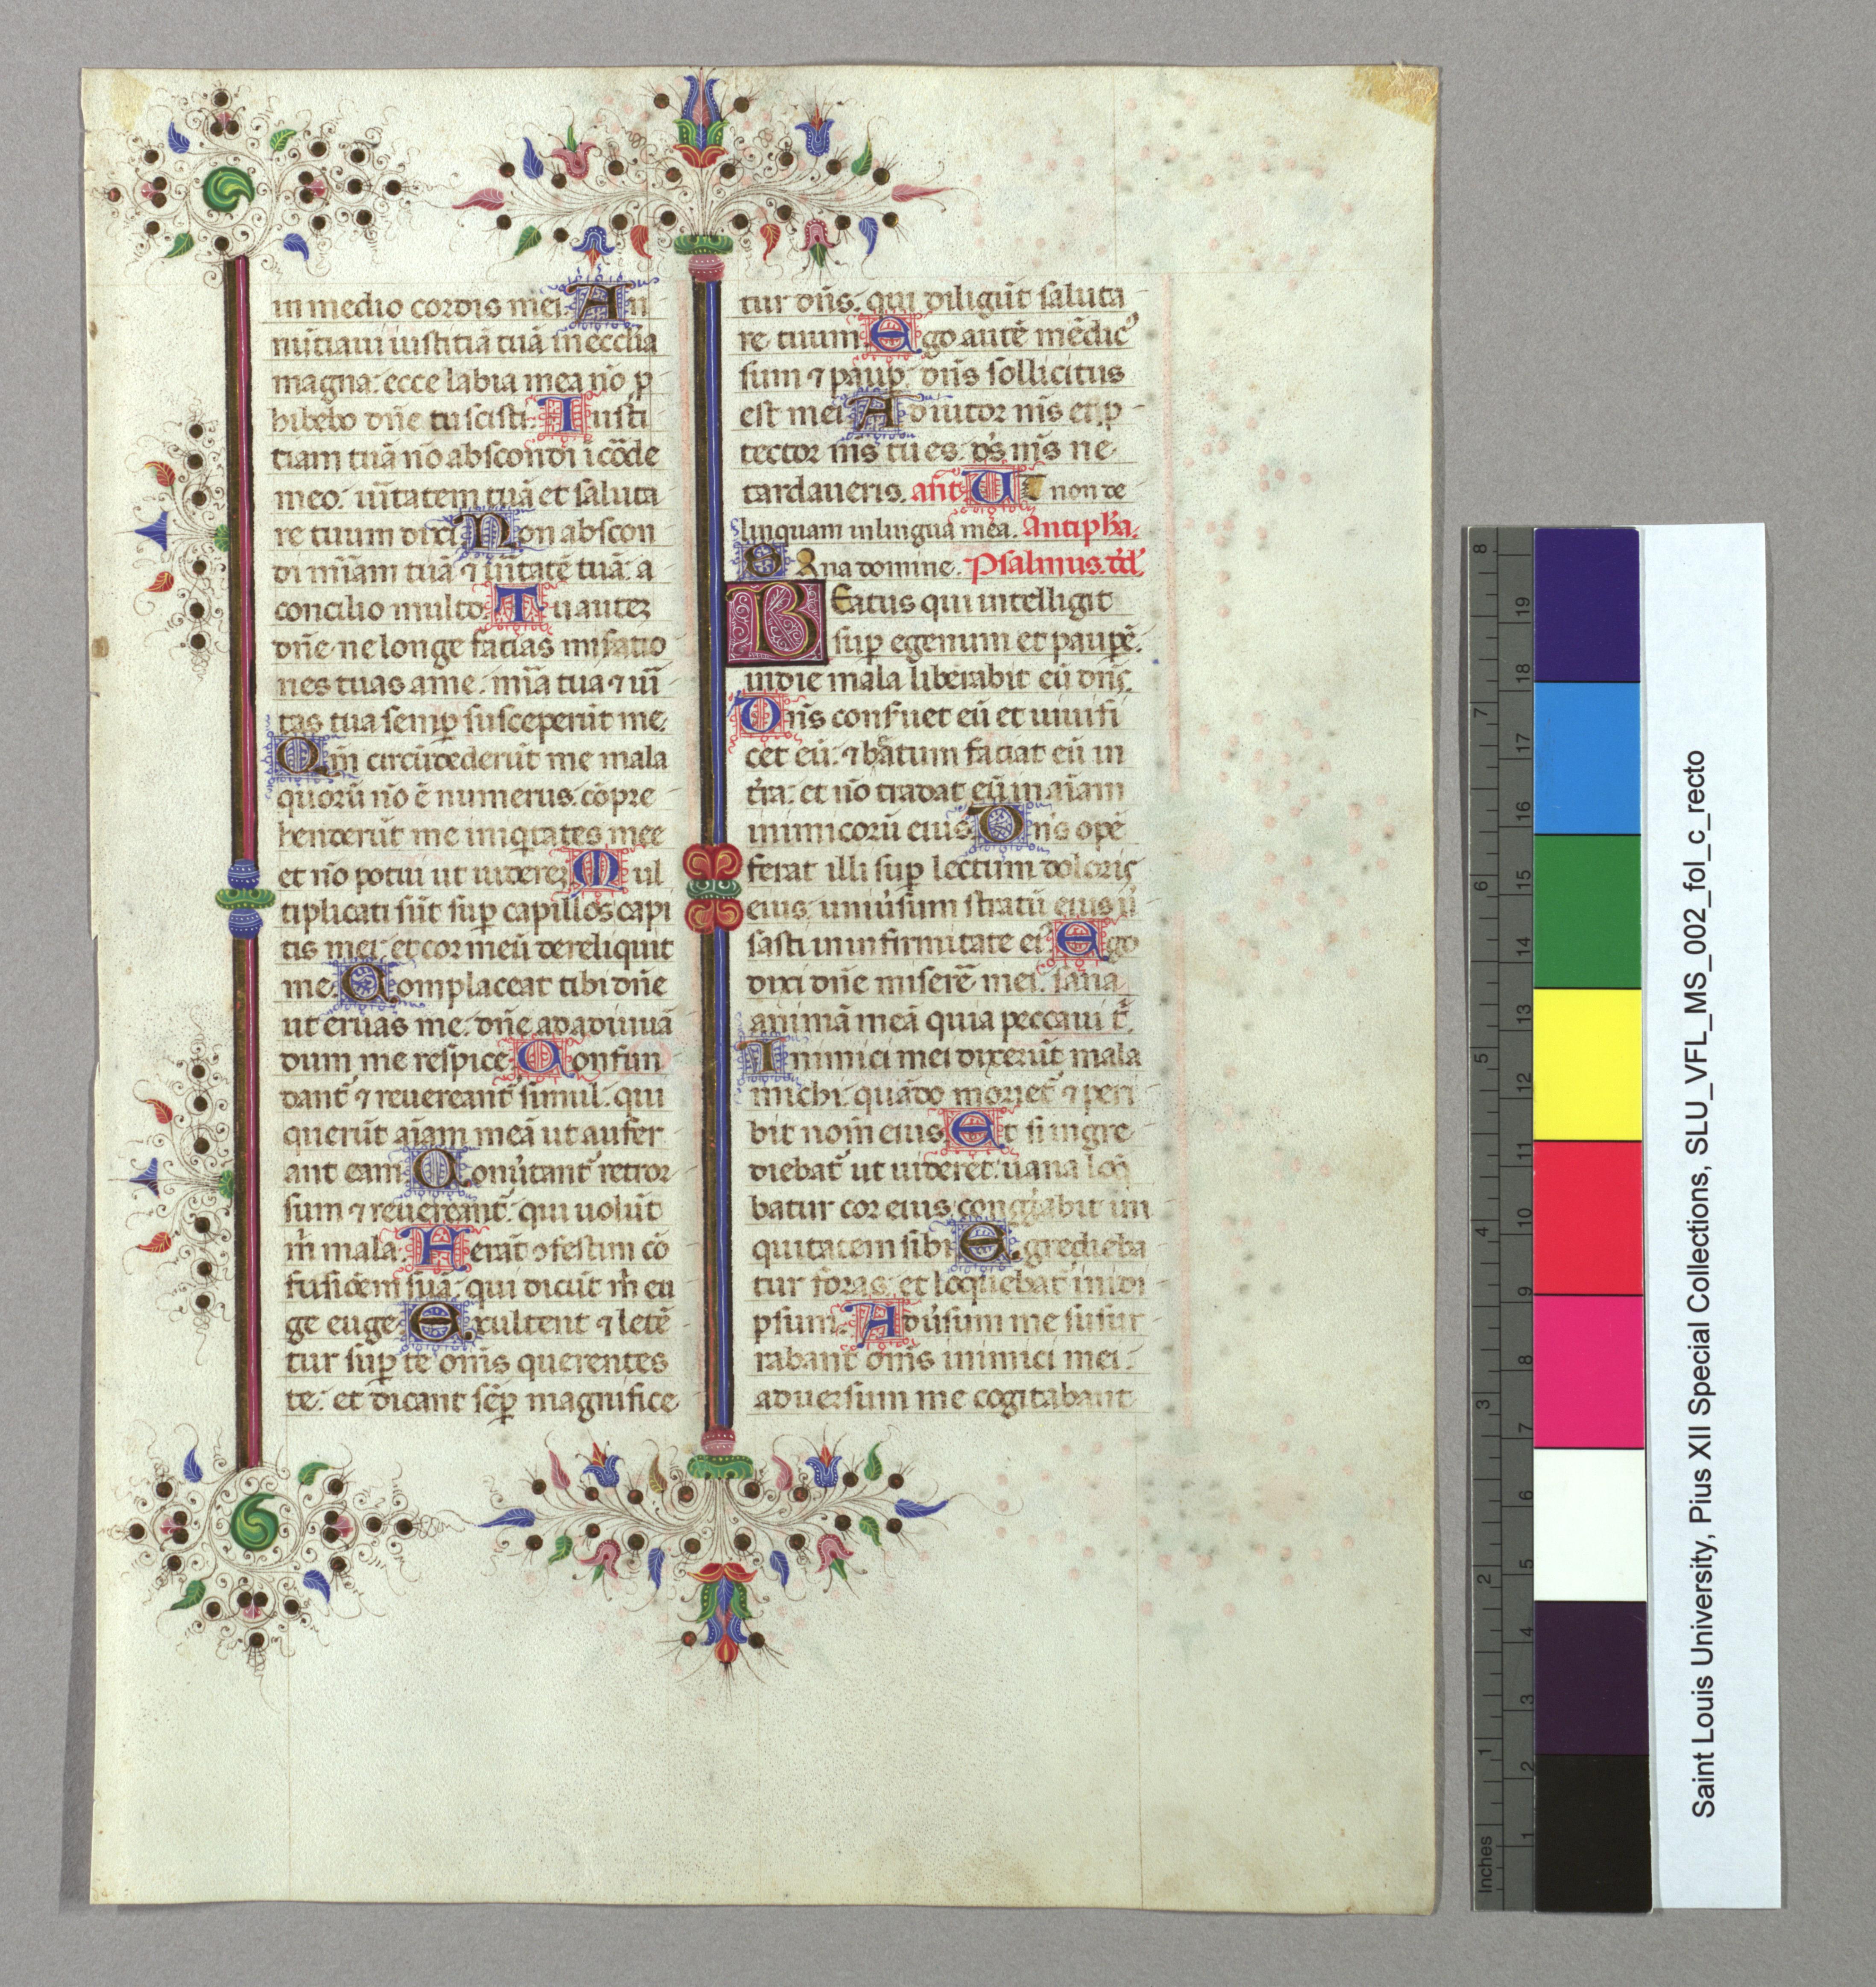 in medio cordis mei. An
nūtiaui iustitiā tuā in ecclīa
magna: ecce labia mea nō ꝓ
hibebo dn̄e tu scisti. Iusti
tiam tuā nō abscondi ī cōde
meo: uītatem tuā et saluta
re tuum dixi. Non abscon
di mīam tuā ⁊ uītatē tuā: a
concilio multo. Tu autez
dn̄e ne longe facias misatio
nes tuas a me: mīa tua ⁊ uī
tas tua semꝑ susceperūt me.
Qm̄ circūdederūt me mala
quorū nō ē numerus: cōpre
henderūt me iniqͥtates mee
et nō potui ut uiderez. Mul
tiplicati sūt suꝑ capillos capi
tis mei: et cor meū dereliquit
me. Complaceat tibi dn̄e
ut eruas me: dn̄e ad adiuuā
dum me respice. Confun
dant᷑ ⁊ reuereant᷑ simul: qui
querūt aīam meā ut aufer
ant eam. Conu̾tant᷑ retror
sum ⁊ reuereant᷑: qui uolūt
m̄ mala. Ferāt ꝯfestim cō
fusiōem suā: qui dicūt m̄ eu
ge euge. Exultent ⁊ letē
tur suꝑ te om̄s querentes
te: et dicant sēꝑ magnifice
tur dn̄s: qui diligūt saluta
re tuum. Ego autē mēdicꝰ
sum ⁊ pauꝑ: dn̄s sollicitus
est mei. Adiutor m̄s et ꝓ
tector m̄s tu es: ds̄ m̄s ne
tardaueris. an̄t. UT non de
linquam in lingua mea. Antiphā.
SAna domine. Psalmus. dd̄.
BEatus qui intelligit
suꝑ egenum et pauꝑē:
in die mala liberabit eū dn̄s.
Dn̄s conseruet eū et uiuifi
cet eū: ⁊ bātum faciat eū in
t̄ra: et nō tradat eū in aīam
inimicorū eius. Dn̄s opē
ferat illi suꝑ lectum doloris
eius: uniu̾sum stratū eius u̾
sasti in infirmitate eiꝰ. Ego
dixi dn̄e miserē mei: sana
animā meā quia peccaui t̄.
Inimici mei dixerūt mala
michi: quādo moriet᷑ ⁊ peri
bit nom̄ eius. Et si ingre
diebat᷑ ut uideret: uana loq̄
batur cor eius congͤgabit ini
quitatem sibi. Egredieba
tur foras: et loquebat᷑ in idi
psum. Adu̾sum me susur
rabant om̄s inimici mei:
aduersum me cogitabant
Inches 1 2 3 4 5 6 7 8
1 2 3 4 5 6 7 8 9 10 11 12 13 14 15 16 17 18 19
Saint Louis University, Pius XII Special Collections, SLU_VFL_MS_002_fol_c_recto